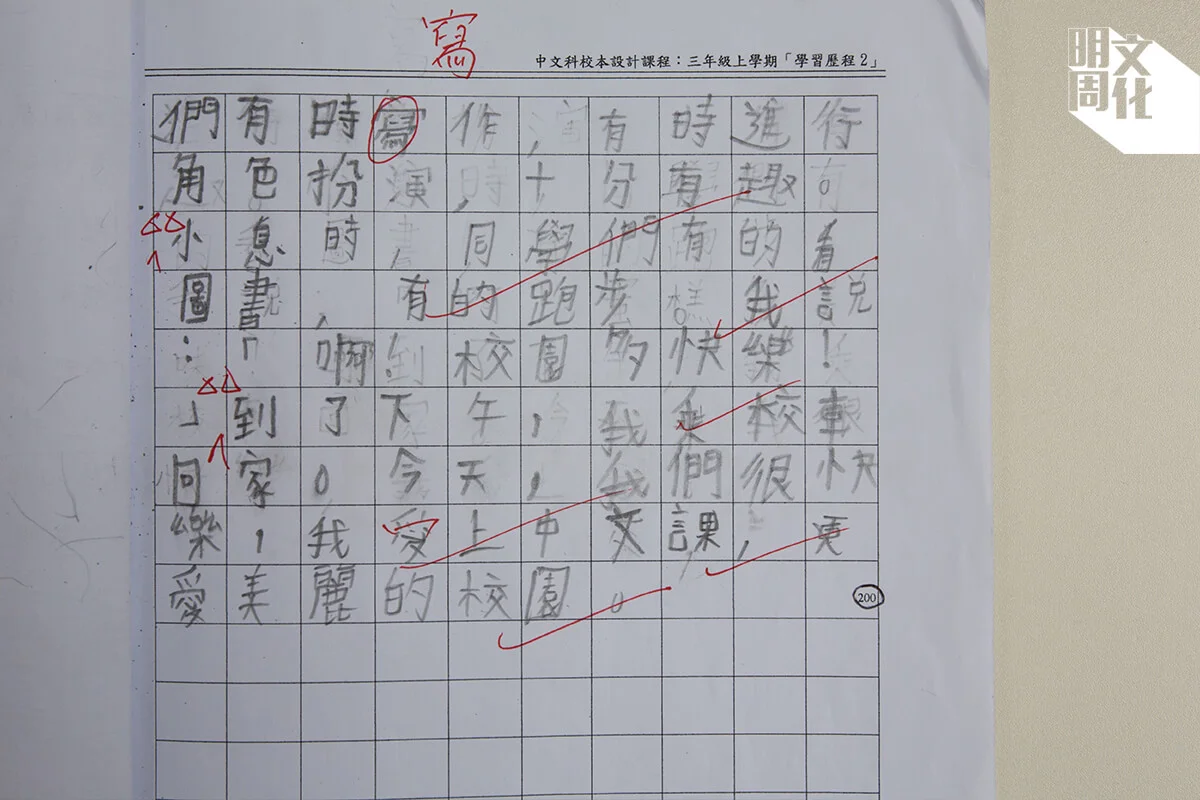 寫
中文科校本設計課程：三年級上學期「學習歷程2」
明周文化
們有時寫作，有時進行
角色扮演，十分有趣。
小息時，同學們有的看
圖書，有的跑步，我說
：「啊！校園多快樂！
」到了下午，我乘校車
回家。今天，我們很快
樂，我愛上中文課，更
愛美麗的校園。
200